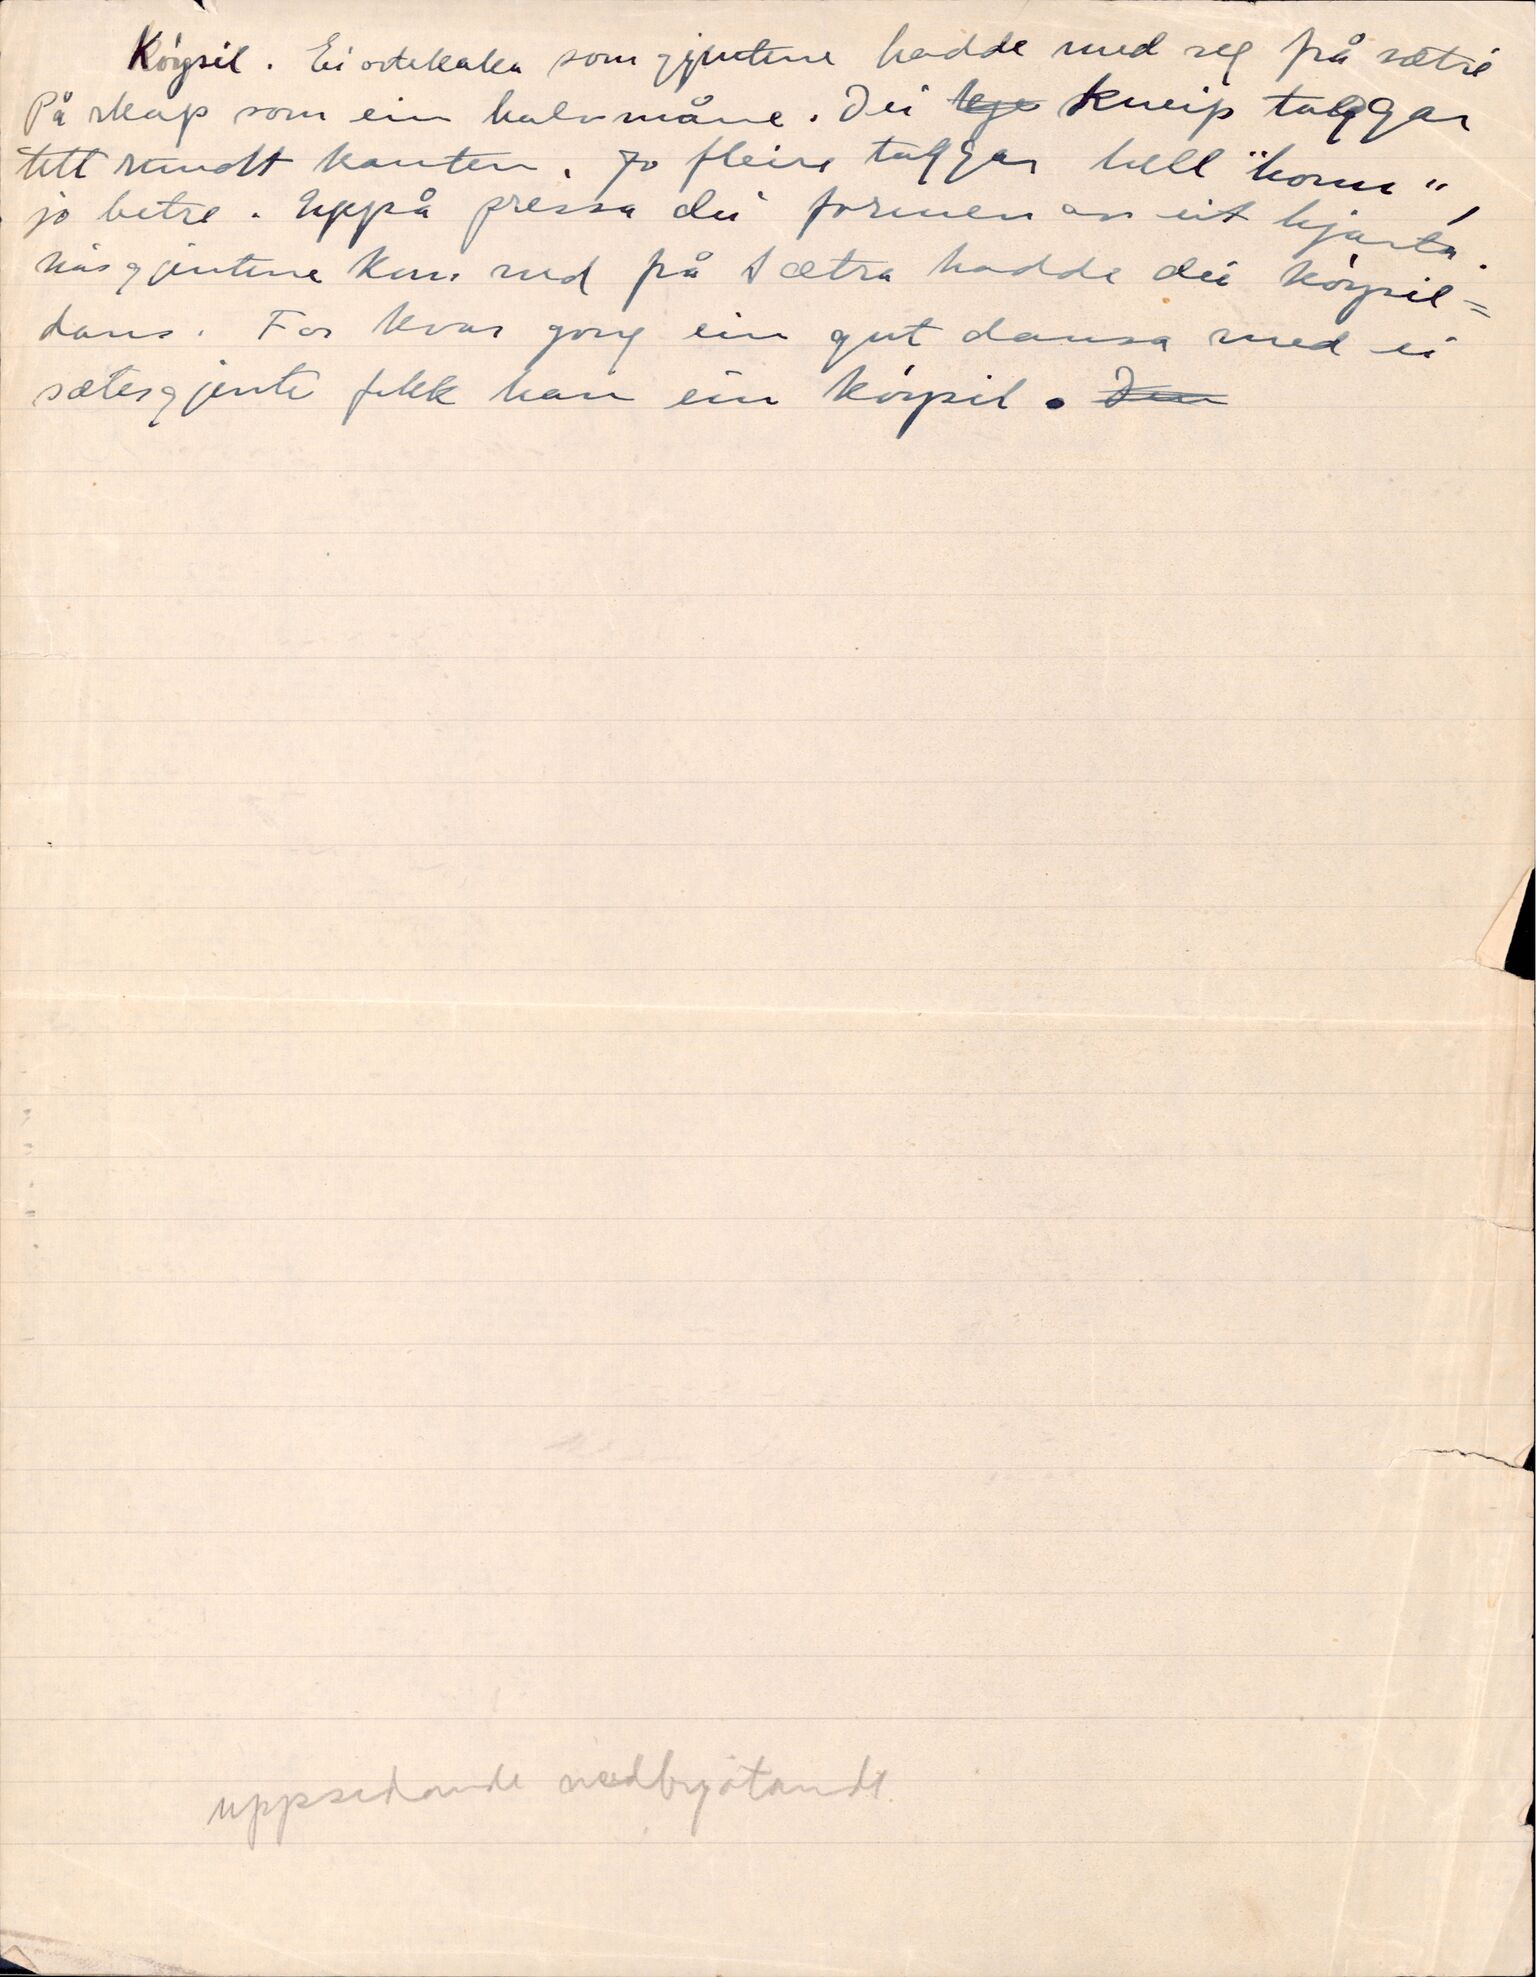 Kóysil. Ei ostekaka som gjentene hadde med seg frå sætre
På skap som ein halvmåne. Dei kneip taggar
tett rundt kanten. Jo fleire taggar hell "honn",
jo betre. Uppå pressa dei formen av eit hjarta.
når gjentene kom ned frå sætra hadde dei kóysil=
dans. For kvar gong ein gut dansa med ei
sætesgjente fekk han ein kóysil. Den
uppsedande nedbrjotande